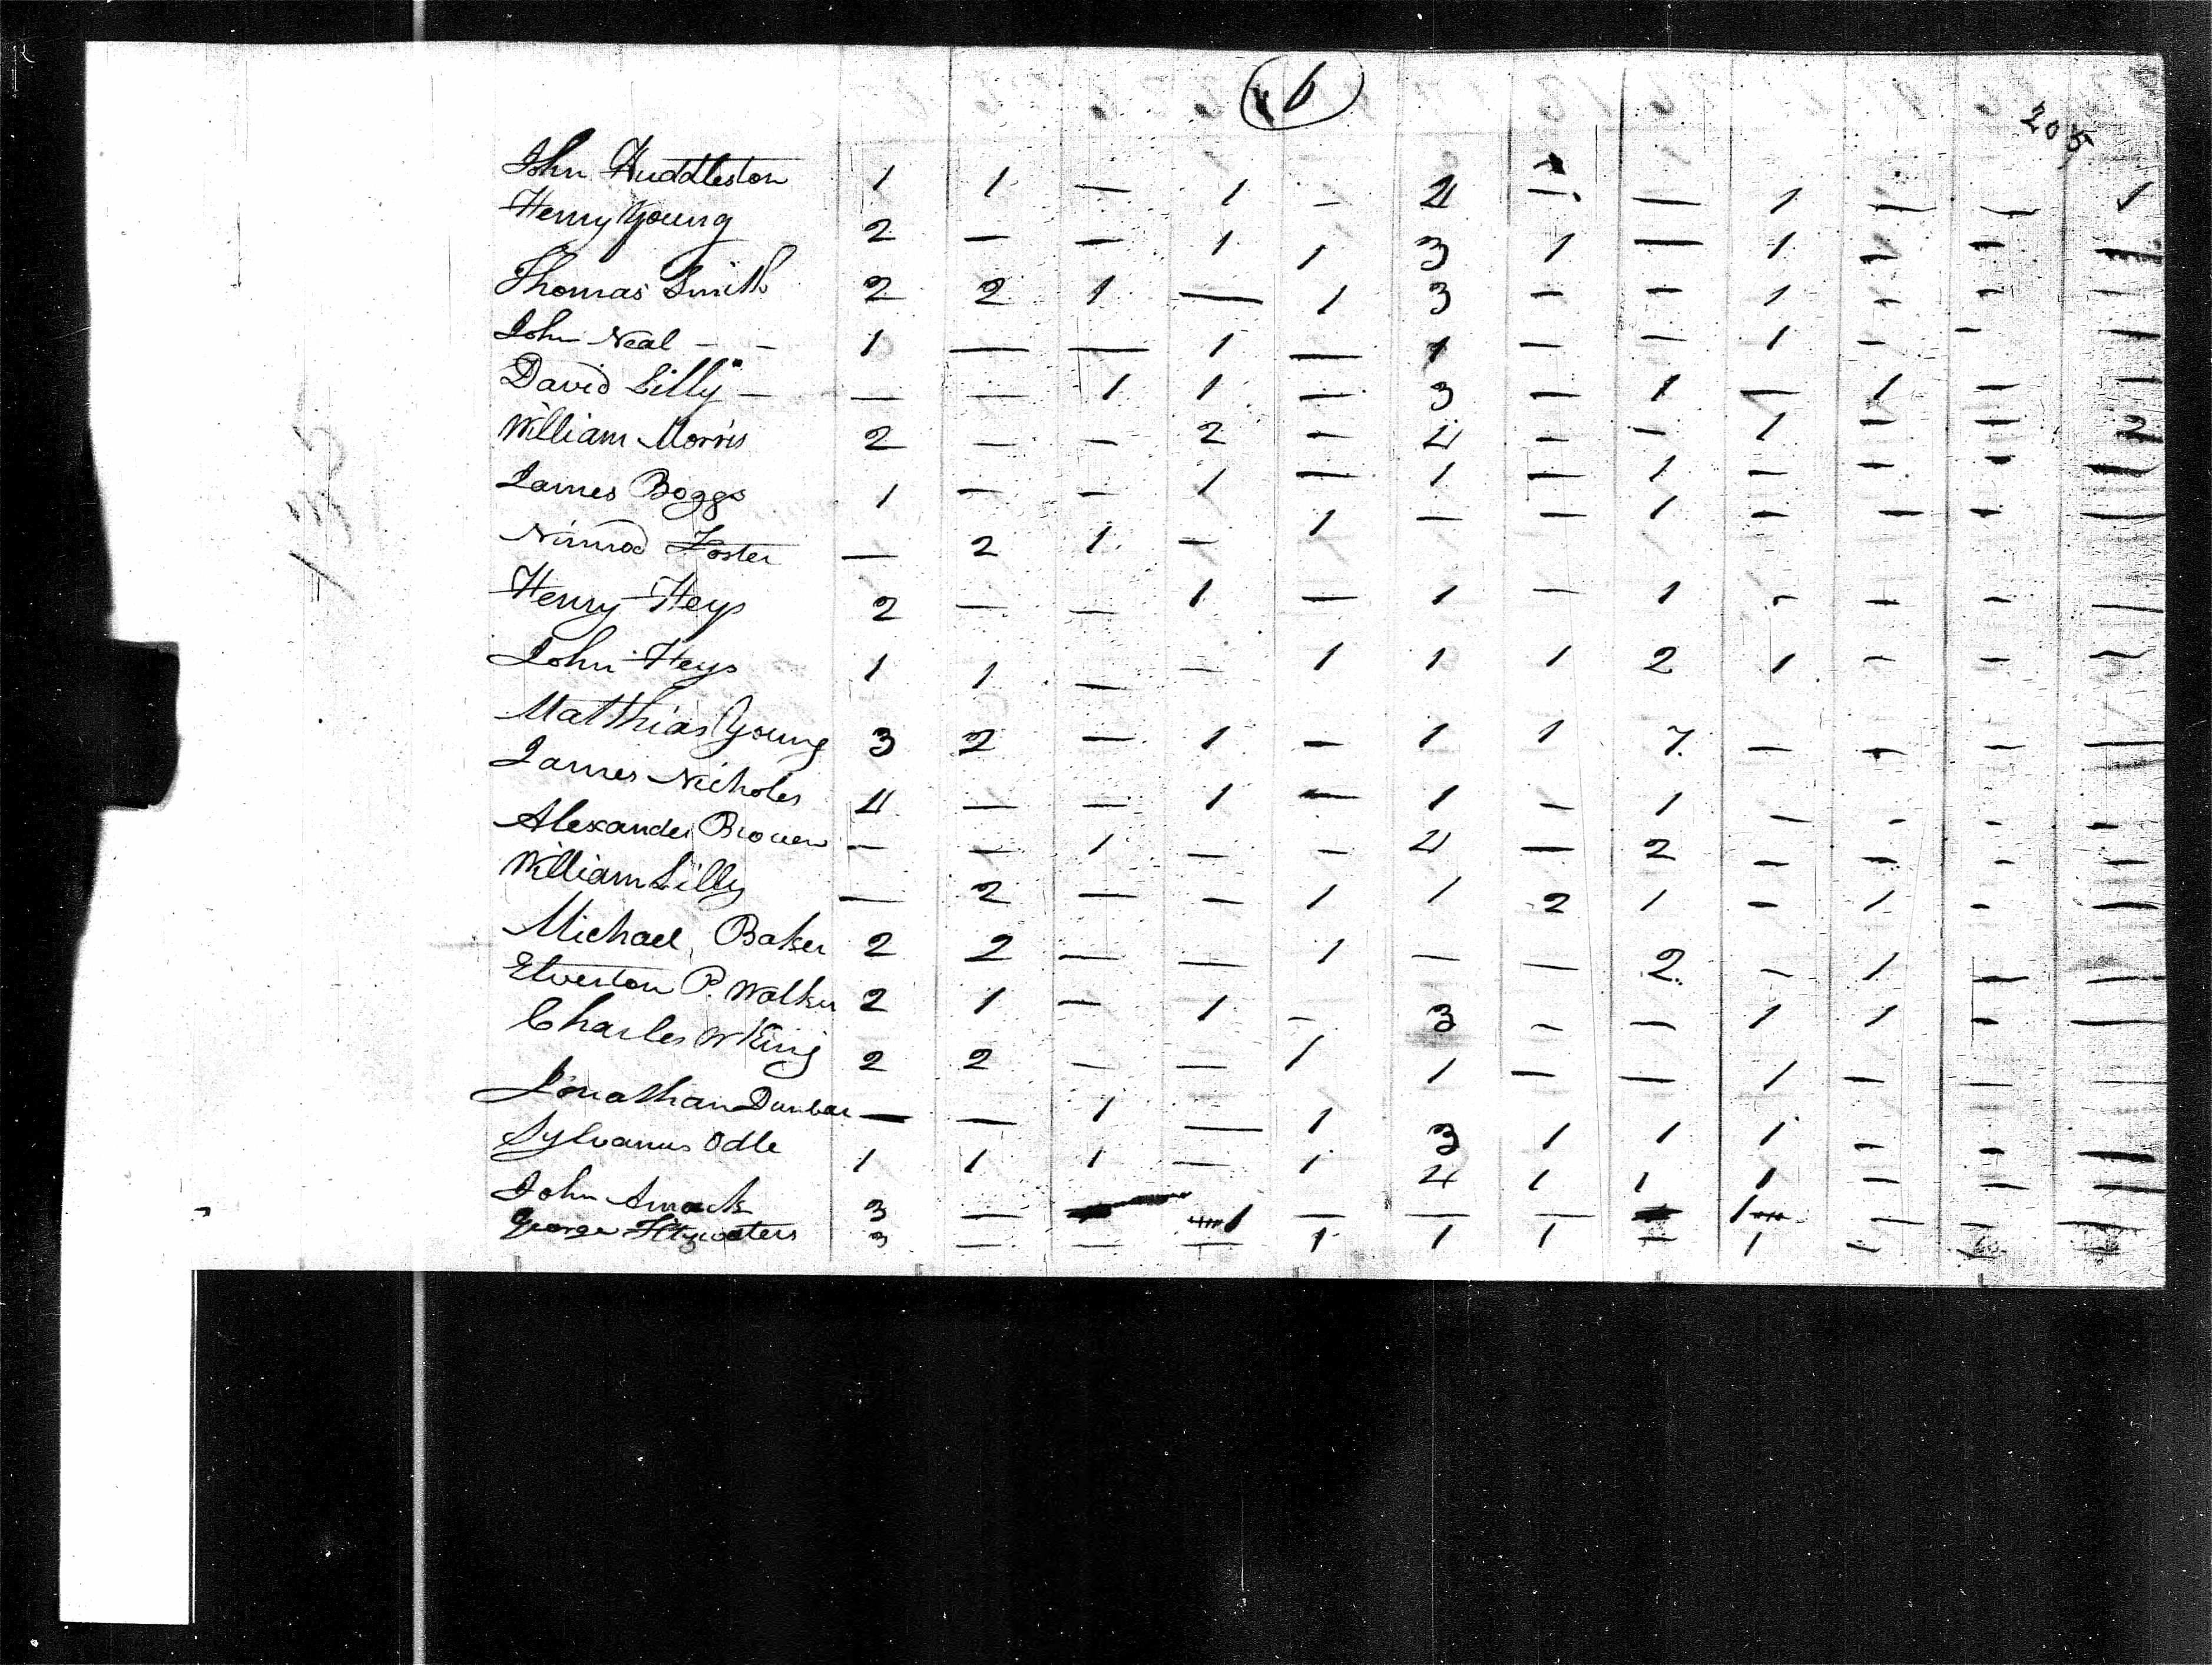 6
205
John Huddleston 1 1 — 1 — 4 — — 1 — — 1
Henry Young 2 — — 1 1 3 1 — 1 — — —
Thomas Smith 2 2 1 — 1 3 — — 1 — — —
John Neal — — 1 — — 1 — 1 — — 1 — — —
David Lilly — — — 1 1 — 3 — 1 — 1 — —
William Morris 2 — — 2 — 4 — — 1 — — 2
James Boggs 1 — — 1 — 1 — 1 — — — —
Nimrod Foster — 2 1 — 1 — — 1 — — — —
Henry Heys 2 — — 1 — 1 — 1 — — — —
John Heys 1 1 — — 1 1 1 2 1 — — —
Matthias Young 3 2 — 1 — 1 1 7 — — — —
James Nicholes 4 — — 1 — 1 — 1 — — — —
Alexander Brown — — 1 — — 4 — 2 — — — —
William Lilly — 2 — — 1 1 2 1 — 1 — —
Michael Baker 2 2 — — 1 — — 2 — 1 — —
Elverton P. Walker 2 1 — 1 — 3 — — 1 1 — —
Charles W King 2 2 — — 1 1 — — 1 — — —
Jonathan Dunbar — — 1 — 1 3 1 1 1 — — —
Sylvanus Odle 1 1 1 — 1 4 1 1 1 — — —
John Smack 3 — — 1 — — — — 1 — — —
George Fitzwaters 3 — — — 1 1 1 — 1 — — —